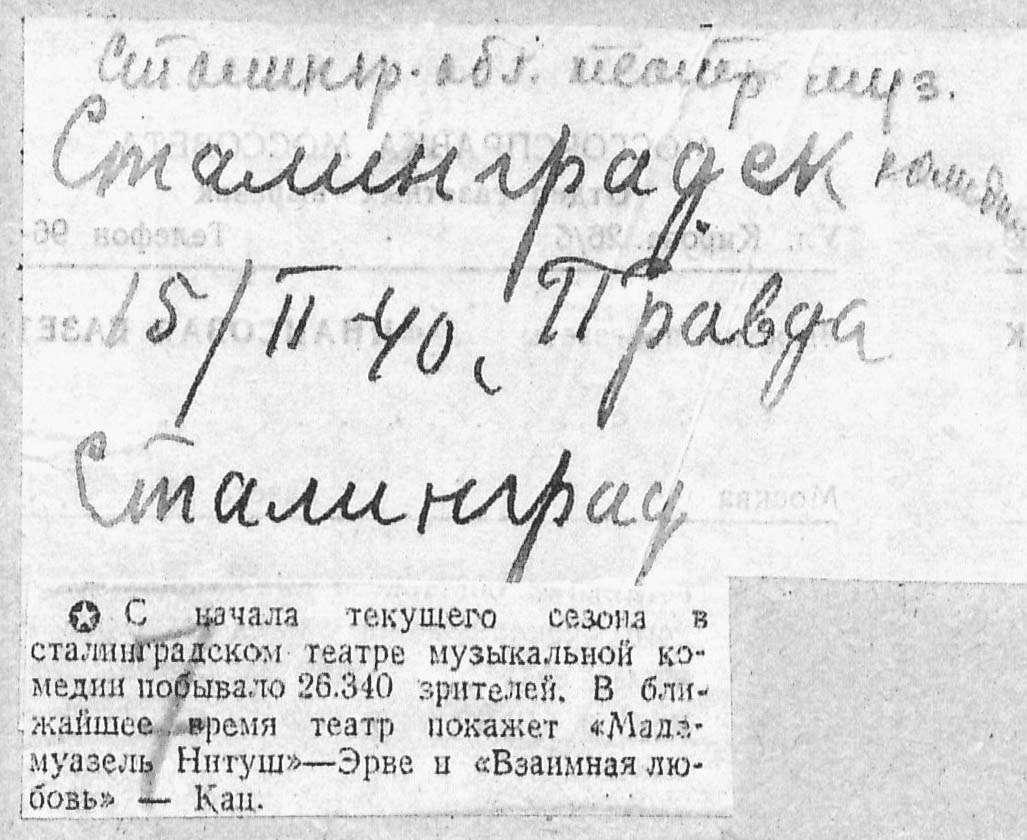 Сталингр. обл. театр муз.
Сталинградск комедии
15/II-40, Правда
Сталинград
С начала текущего сезона в
сталинградском театре музыкальной ко-
медии побывало 26.340 зрителей. В бли-
жайшее время театр покажет «Мадэ-
муазель Нитуш»—Эрве и «Взаимная лю-
бовь» — Кац.
7